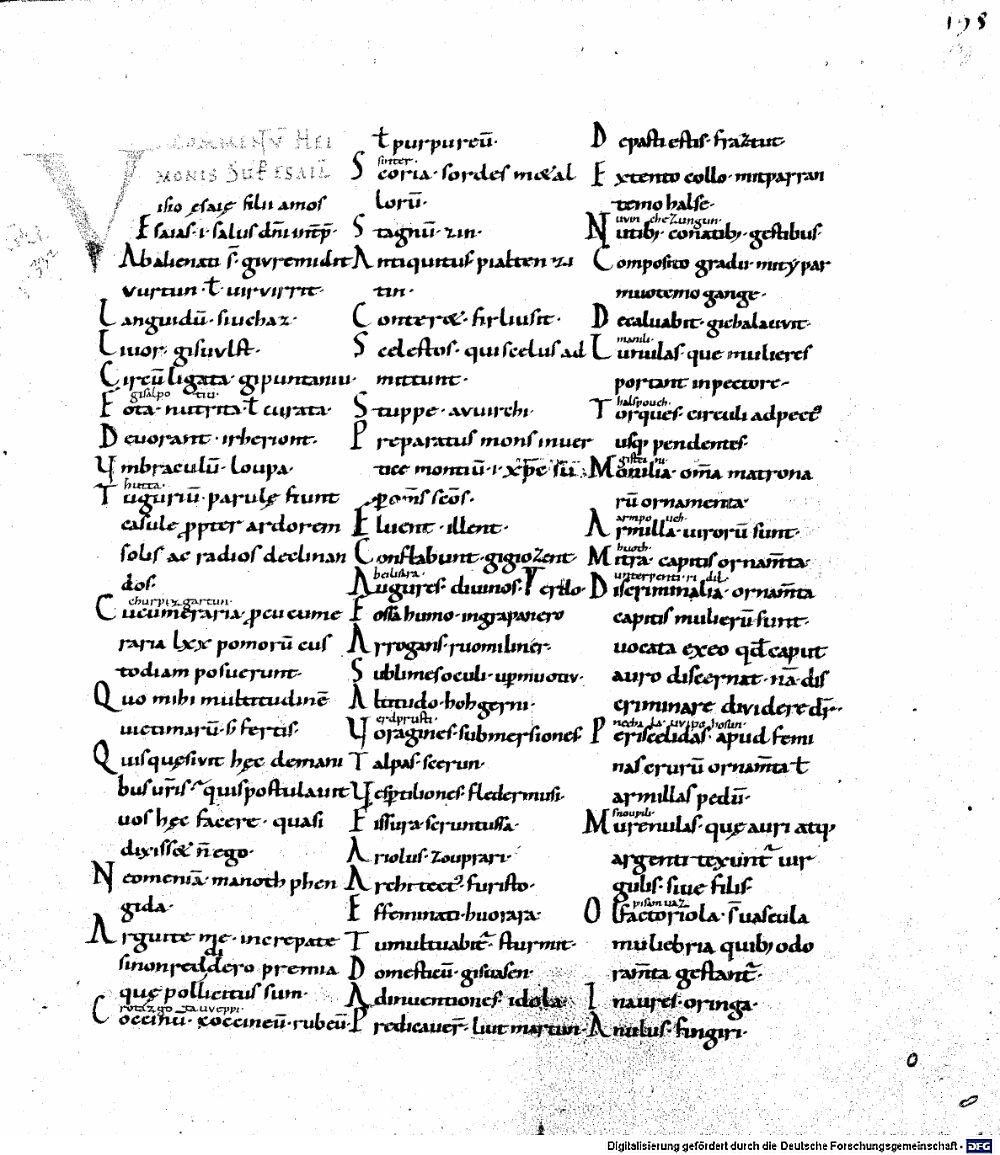 198
COMMENTV̄ HEI
MONIS SUP ESAIĀ
Visio esaię filii amos
Esaias · i · salus dn̄i int̄p̄ ·
Abalienati s̄ · givremidit
vurtun · ł uirvirrit ·
Languidū · siuchaz ·
Liuor · gisuulst ·
Circū ligata · gipuntaniu ·
gisalpo tiu
Fota · nutrita ł curata ·
Deuorant · irheriont ·
Vmbraculū · loupa ·
hutta ·
Tuguriū · parulę fiunt
casule ꝓpter ardorem
solis ac radios declinan
dos ·
churpizgartun ·
Cucumeraria · ꝓcucume
raria lxx pomorū cus
todiam posuerunt ·
Quo mihi multitudinē
uictimarū · s̄ fertis ·
Quis quęsivit hęc de mani
bus ur̄is · quis postulauit
uos hęc facere · quasi
dixiss& · n̄ ego ·
Neomeniā · manoth phen
gida ·
Arguite me · increpate
si non reddidero premia
quę pollicitus sum ·
rotaz go ta uveppi ·
Coccinū · xoccineū · rubeū ·
ł purpureū ·
sinter ·
Scoria · sordes m&al
lorū ·
Stagnū · zin ·
Antiquitus · pialten zi
tin ·
Conter& · firliusit ·
Scelestos · qui scelus ad
mittunt ·
Stuppe · avuirchi ·
Preparatus mons in uer
tice montiū · i · xp̄c sū
ꝑ om̄s sc̄os ·
Eluent · illent ·
Conflabunt · gigiozent
heilisara ·
Augures · diuinos · Vertlo ·
Fossa humo · ingrapanero
Arrogans · ruomiliner ·
Sublimes oculi · upmuotiv ·
Altitudo · hohgerni ·
erdprusti ·
Voragines · submersiones
Talpas · scerun ·
Vespertiliones · fledermusi ·
Fissura · scruntussa ·
Ariolus · zouprari ·
Architectꝰ · furisto ·
Effeminati · huorara ·
Tumultuabit̄ · sturmit ·
Domesticū · gisuasen ·
Adinuentiones · idola ·
Predicauer̄ · liut martun ·
Depasti estis · frazt ut
Extento collo · mit parran
temo halse ·
uvin chezungun ·
Nutibꝫ · conatibꝫ · gestibus ·
Composito gradu · mit ẏpar
muotemo gange ·
Decaluabit · gichalauvit ·
manili ·
Lunulas · que mulieres
portant in pectore ·
halspouch ·
Torques · circuli ad pectꝰ
usqꝫ pendentes ·
Monilia · om̄a matrona
rū ornamenta ·
armpouch ·
Armilla · uirorū sunt ·
huoth ·
Mitra · capitis ornam̄ta ·
Discriminalia · ornam̄ta
capitis mulierū sunt ·
uocata ex eo qđ caput
auro discernat · nā dis
criminare dividere dr̄ ·
Periscelidas · apud femi
nas crurū ornam̄ta ł
armillas pedū ·
snoupili ·
Murenulas · quę auri atqꝫ
argenti texunt̄ uir
gulis · siue filis ·
pisam uaz
Olfactoriola · s̄ uascula
muliebria quibꝫ odo
ram̄ta gestant̄ ·
Inaures · oringa ·
Anulus · fingiri ·
Digitalisierung gefördert durch die Deutsche Forschungsgemeinschaft - DFG